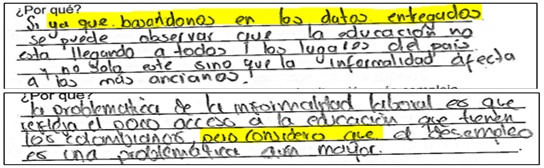 ¿Por qué?
Si ya que basandonos en los datos entregados
se puede observar que la educación no
esta llegando a todos los lugares del país
y no solo este sino que la informalidad afecta
a los más ancianos.
¿Por qué?
la problematica de la informalidad laboral es que
refleja el poco acceso a la educación que tienen
los colombianos pero considero que el desempleo
es una problemática aún mayor.